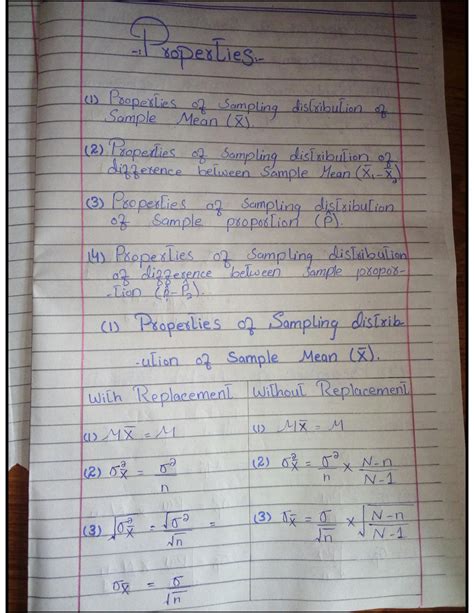 -: Properties :-
(1) Properties of Sampling distribution of
Sample Mean (X̄).
(2) Properties of Sampling distribution of
difference between Sample Mean (X̄₁-X̄₂)
(3) Properties of Sampling distribution
of Sample proportion (P̂).
(4) Properties of Sampling distribution
of difference between Sample propor-
-tion (P̂₁-P̂₂).
(1) Properties of Sampling distrib-
-ution of Sample Mean (X̄).
With Replacement | Without Replacement
(1) μX̄ = μ | (1) μX̄ = μ
(2) σ²x̄ = σ²/n | (2) σ²x̄ = σ²/n × N-n/N-1
(3) √σ²x̄ = √σ²/√n = | (3) σx̄ = σ/√n × √N-n/N-1
σx̄ = σ/√n